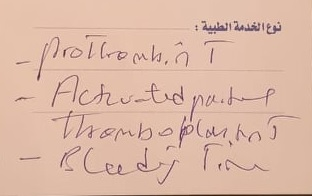 نوع الخدمة الطبية :
- prothrombin T
- Activated partial
Thromboplastin T
- Bleeding Time